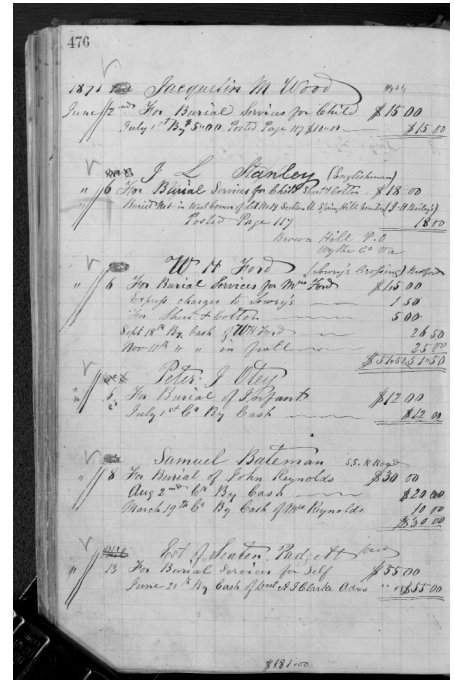 476
1871 Jacquelin M Wood
June 2nd For Burial Services for Child $15 00
July 1st By $5.00 Posted Page 117 $10.00 $15 00
J L Stanley (Englishman)
" 6 For Burial Services for Child Shirt & Cotton $18 00
Buried Not in West corner of Lot No Section Spring Hill
Posted Page 117 18 00
Brown Hill P.O
Wythe Co Va
W H Ford (Lowry's Crossing) Bedford
" 6 For Burial Services for Mrs Ford $45 00
Express charges to Lowry's 1 50
For Shirt & Cotton 5 00
Sept 18th By Cash of W H Ford 26 50
Nov 11th " " in full 25 00
$51 50 51 50
Peter J Otey
" 8 For Burial of Infant $12 00
July 1st Cr By Cash $12 00
Samuel Bateman S.S. R Road
" 8 For Burial of John Reynolds $30 00
Aug 2nd Cr By Cash $20 00
March 19th Cr By Cash of Mrs Reynolds 10 00
$30 00
Est of Seaten Padgett
" 13 For Burial Services for Self $55 00
June 21st By Cash of A J Clarke Adm $55 00
$181.00